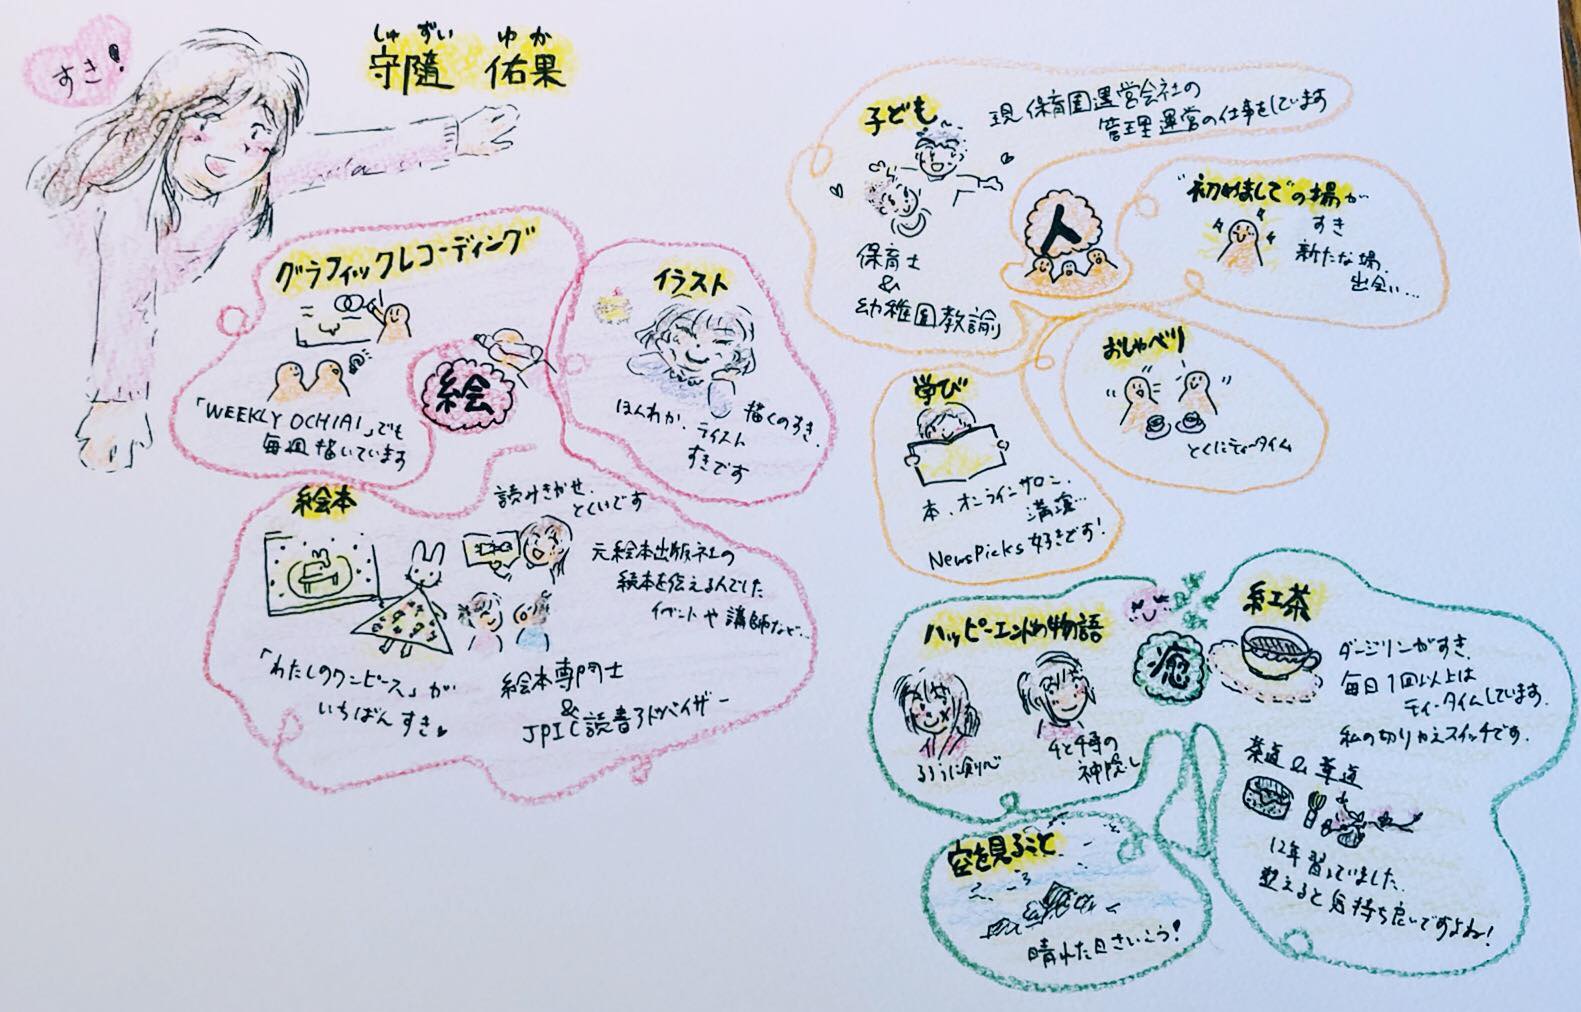 すき!
しゅずい ゆか
守隨 佑果
グラフィックレコーディング
「WEEKLY OCHIAI」でも
毎週描いています
絵
イラスト
ほんわか、
イラスト
すきです
描くのすき、
絵本
読みきかせ、
とくいです
元絵本出版社の
絵本を伝える人でした
イベントや講師など…
「わたしのワンピース」が
いちばんすき
絵本専門士
&
JPIC読書アドバイザー
子ども
現 保育園運営会社の
管理運営の仕事をしています
保育士
&
幼稚園教諭
人
"初めまして"の場が
すき
新たな場、
出会い…
おしゃべり
とくにティータイム
学び
本、オンラインサロン、
講演…
NewsPicks好きです!
癒
ハッピーエンドの物語
るろうに剣心
千と千尋の
神隠し
空を見ること
晴れた日さいこう!
紅茶
ダージリンがすき、
毎日1回以上は
ティータイムしています。
私の切りかえスイッチです。
茶道&華道
12年習っていました。
整えると気持ち良いですよね!